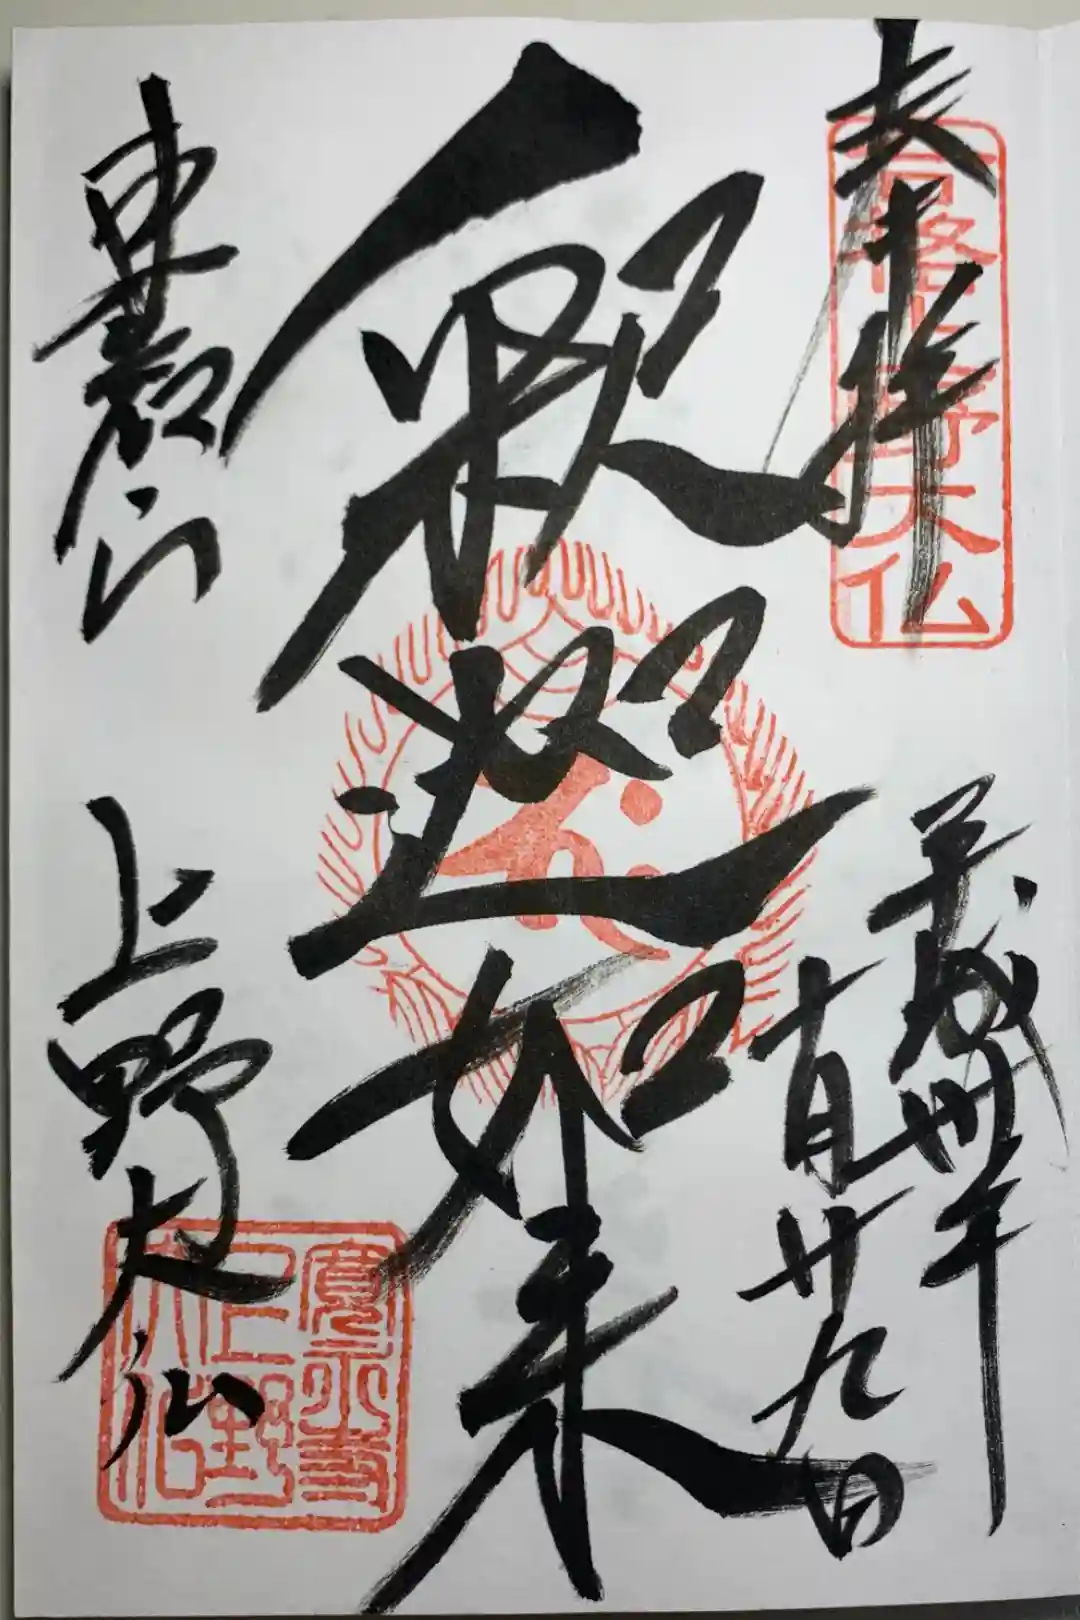 奉拝
合格上野大仏
平成卅年
十月廿九日
釈迦如来
東叡山
上野大仏
寛永寺
上野
大仏